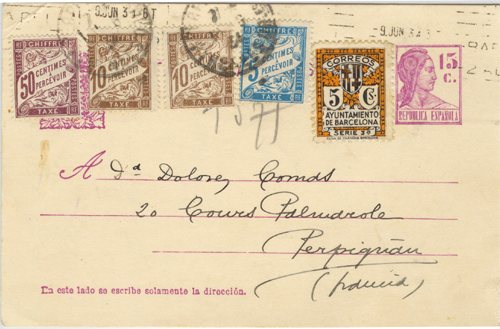 9.JUN 3
9.JUN 33
CHIFFRE
50
CENTIMES
À
PERCEVOIR
TAXE
CHIFFRE
10
CENTIMES
À
PERCEVOIR
TAXE
CHIFFRE
10
CENTIMES
À
PERCEVOIR
TAXE
CHIFFRE
5
CENTIMES
À
PERCEVOIR
TAXE
CORREOS
5 Cs
AYUNTAMIENTO
DE BARCELONA
SERIE 3ª
15
C.
REPUBLICA ESPAÑOLA
T
A Dª Dolores Comas
20 Cours Palmarole
Perpignan
(Francia)
En este lado se escribe solamente la dirección.